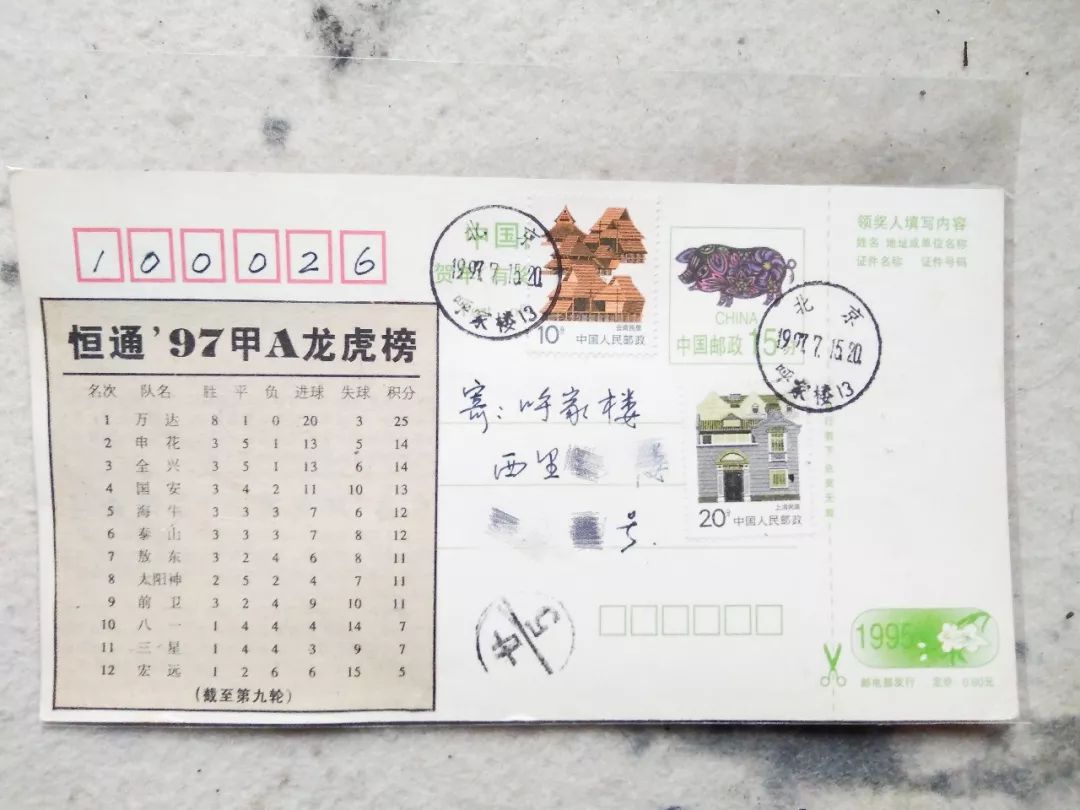 1 0 0 0 2 6
恒通'97甲A龙虎榜
名次 队名 胜 平 负 进球 失球 积分
1 万达 8 1 0 20 3 25
2 申花 3 5 1 13 5 14
3 全兴 3 5 1 13 6 14
4 国安 3 4 2 11 10 13
5 海牛 3 3 3 7 6 12
6 泰山 3 3 3 7 8 12
7 敖东 3 2 4 6 8 11
8 太阳神 2 5 2 4 7 11
9 前卫 3 2 4 9 10 11
10 八一 1 4 4 4 14 7
11 三星 1 4 4 3 9 7
12 宏远 1 2 6 6 15 5
(截至第九轮)
中国
贺年 有
北京
1997.7.15.20
呼家楼13
10分
云南民居
中国人民邮政
CHINA
中国邮政 15分
北京
1997.7.15.20
呼家楼13
寄:呼家楼
西里
号.
20分
上海民居
中国人民邮政
领奖人填写内容
姓名 地址或单位名称
证件名称 证件号码
1995
邮电部发行 定价 0.60元